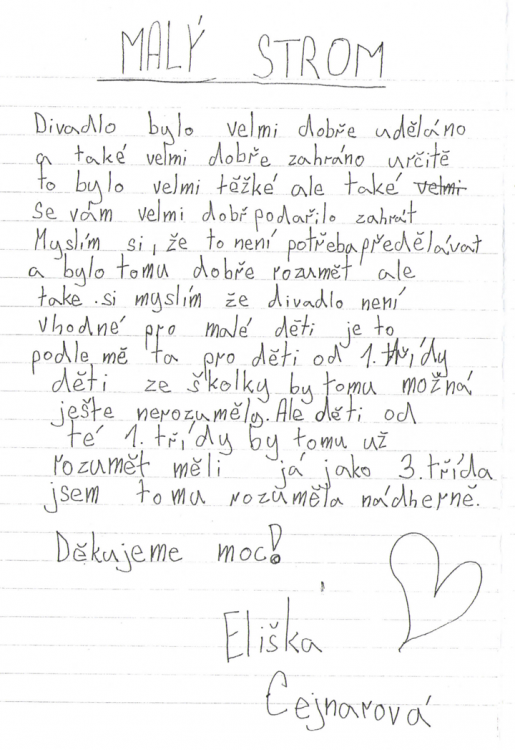 MALÝ STROM
Divadlo bylo velmi dobře uděláno
a také velmi dobře zahráno určitě
to bylo velmi těžké ale také velmi
se vám velmi dobř podařilo zahrát
Myslím si, že to není potřeba předělávat
a bylo tomu dobře rozumět ale
take si myslím že divadlo není
vhodné pro malé děti je to
podle mě ta pro děti od 1. třídy
děti ze školky by tomu možná
ješte nerozuměly. Ale děti od
té 1. třídy by tomu už
rozumět měli já jako 3. třída
jsem tomu rozuměla nádherně.
Děkujeme moc!
Eliška
Cejnarová